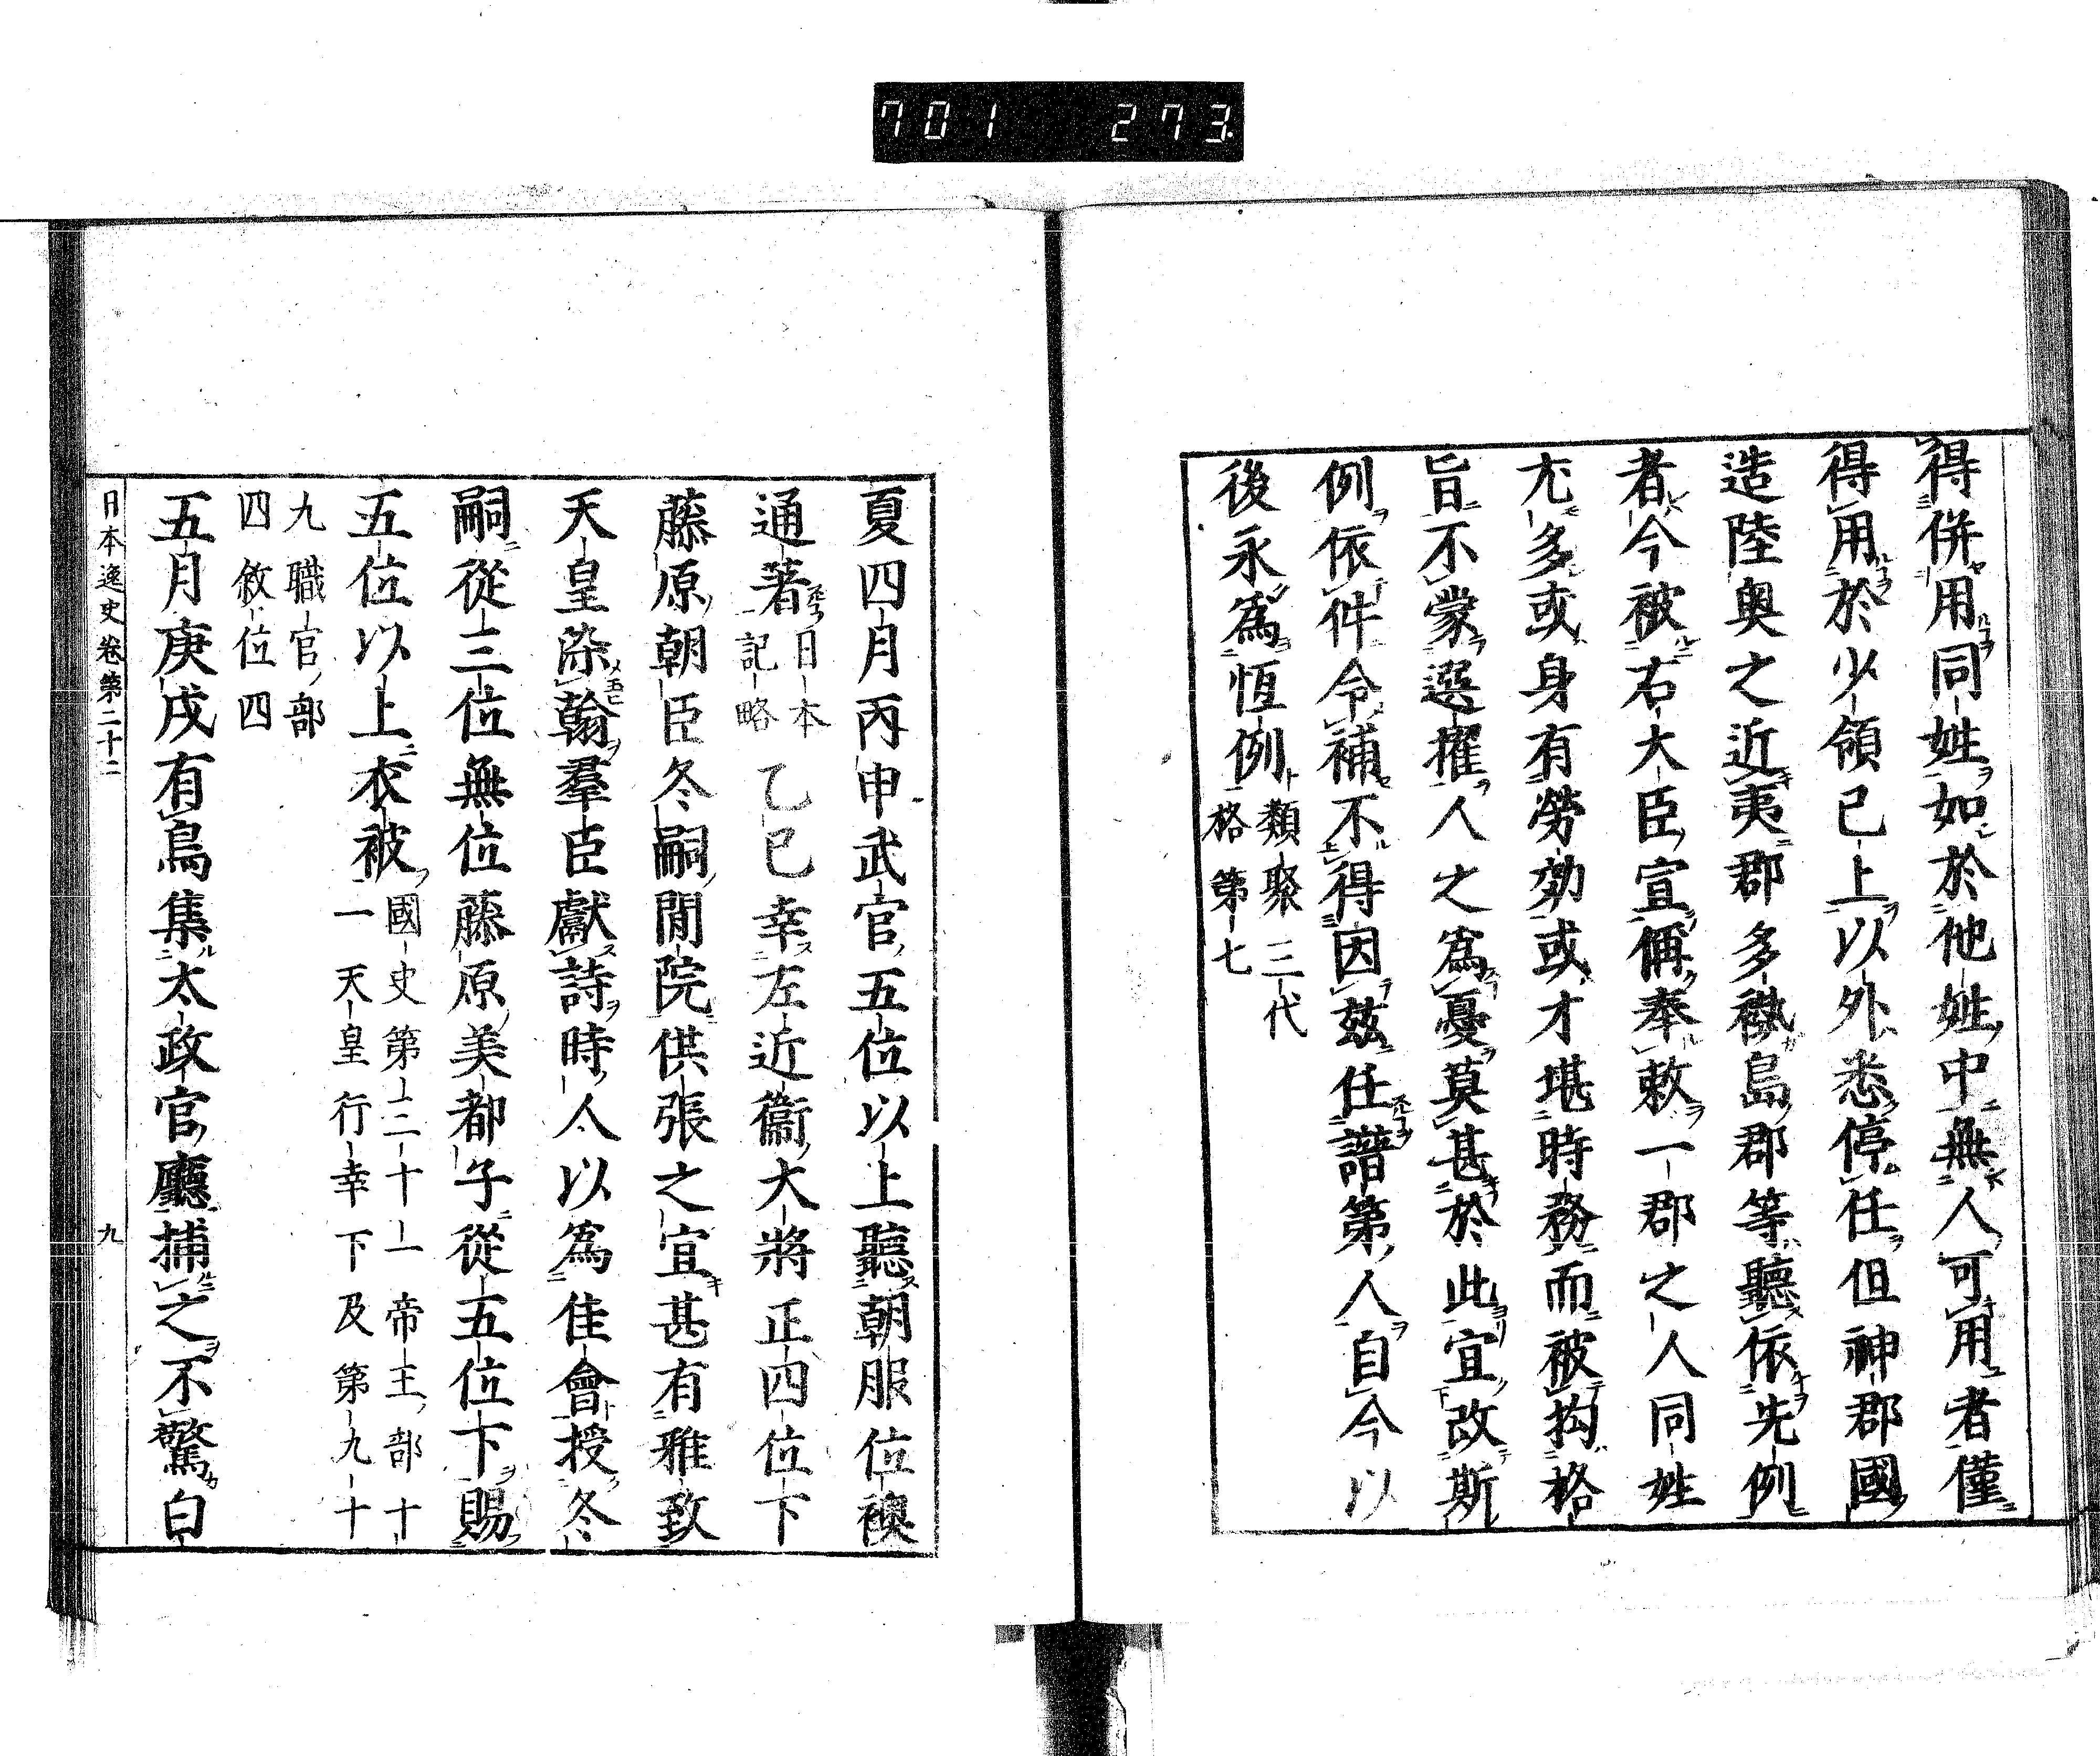 701 273
得併用同姓如於他姓中無人可用者僅
得用於少領已上以外悉停任但神郡國
造陸奥之近夷郡多褹島郡等聽依先例
者今被右大臣宣偁奉敕一郡之人同姓
尤多或身有勞効或才堪時務而被拘格
旨不蒙選擢人之為憂莫甚於此宜改斯
例依件令補不得因兹任譜第人自今以
後永為恆例
類聚三代
格第七
夏四月丙申武官五位以上聽朝服位襖
通著
日本
記略
乙巳幸左近衞大將正四位下
藤原朝臣冬嗣閒院供張之宜甚有雅致
天皇染翰羣臣獻詩時人以為佳會授冬
嗣從三位無位藤原美都子從五位下賜
五位以上衣被
國史第三十一帝王部十
一天皇行幸下及第九十
九職官部
四敘位四
五月庚戌有鳥集太政官廳捕之不驚白
日本逸史卷第二十二
九